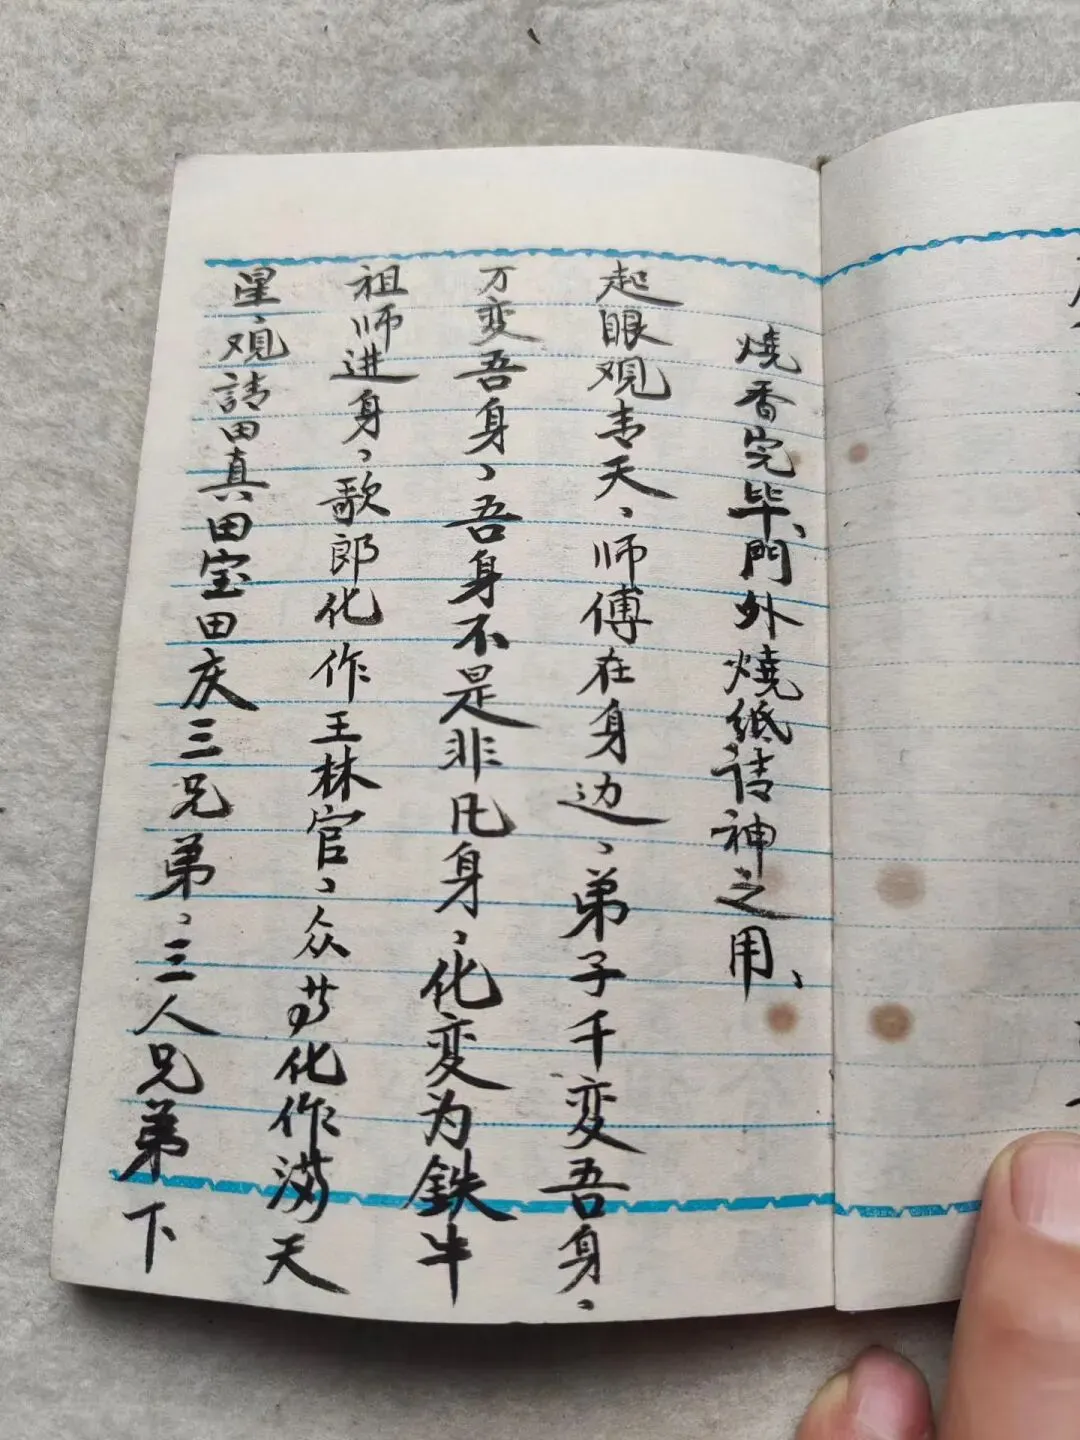 燒香完毕、門外燒纸請神之用、
起眼观青天、师傅在身边、弟子千变吾身、
万变吾身、吾身不是非凡身、化变为鉄牛
祖师进身、歌郎化作王林官、众化作满天
星、观請田真田宝田庆三兄弟、三人兄弟下